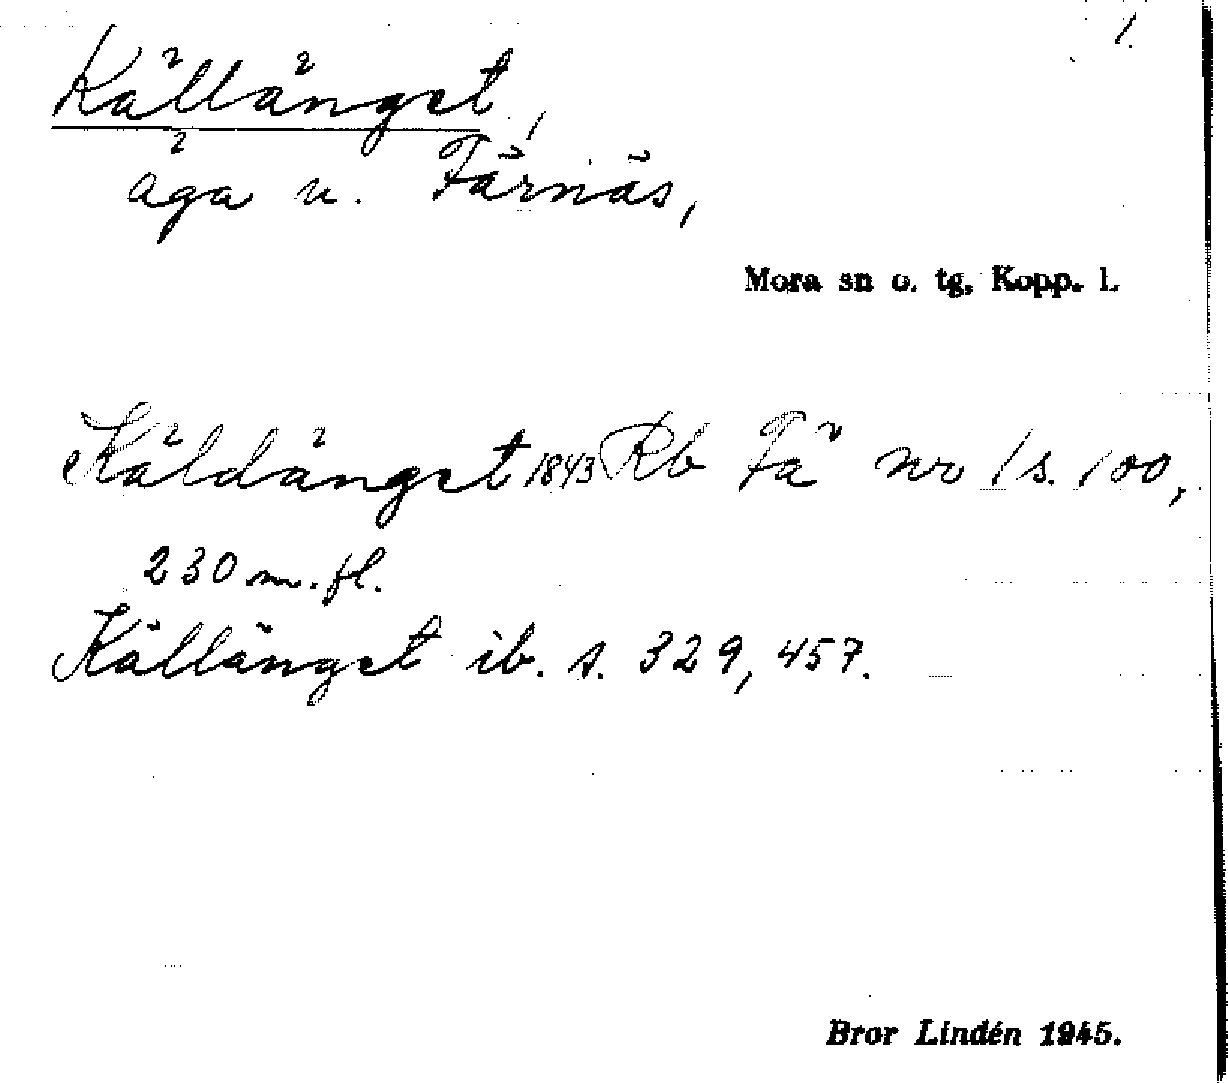 1.
Källänget,
äga u. Färnäs,
Mora sn o. tg, Kopp. l.
Käldänget 1843 Rb Fä nr 1 s. 100,
230 m. fl.
Källänget ib. s. 329, 457.
Bror Lindén 1945.